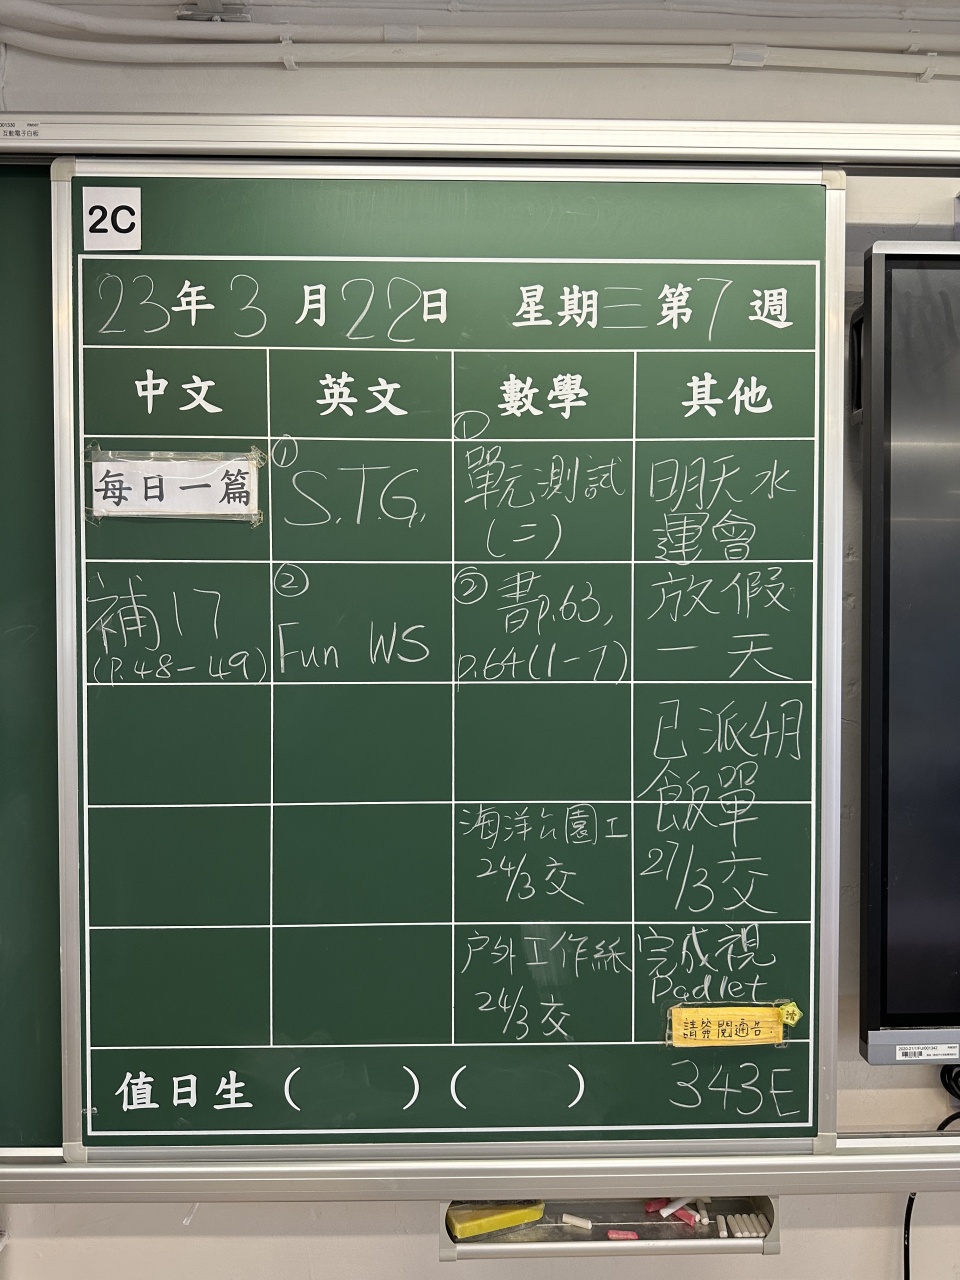 互動電子白板
2C
23年3月22日 星期三第7週
中文 英文 數學 其他
每日一篇
補17
(P.48-49)
① S.T.G.
② Fun WS
① 單元測試
(二)
② 書p.63,
p.64(1-7)
海洋公園工
24/3交
戶外工作紙
24/3交
明天水
運會
放假
一天
已派4月
飯單
27/3交
完成視
Padlet
請簽閱通告
值日生 ( ) ( ) 343E